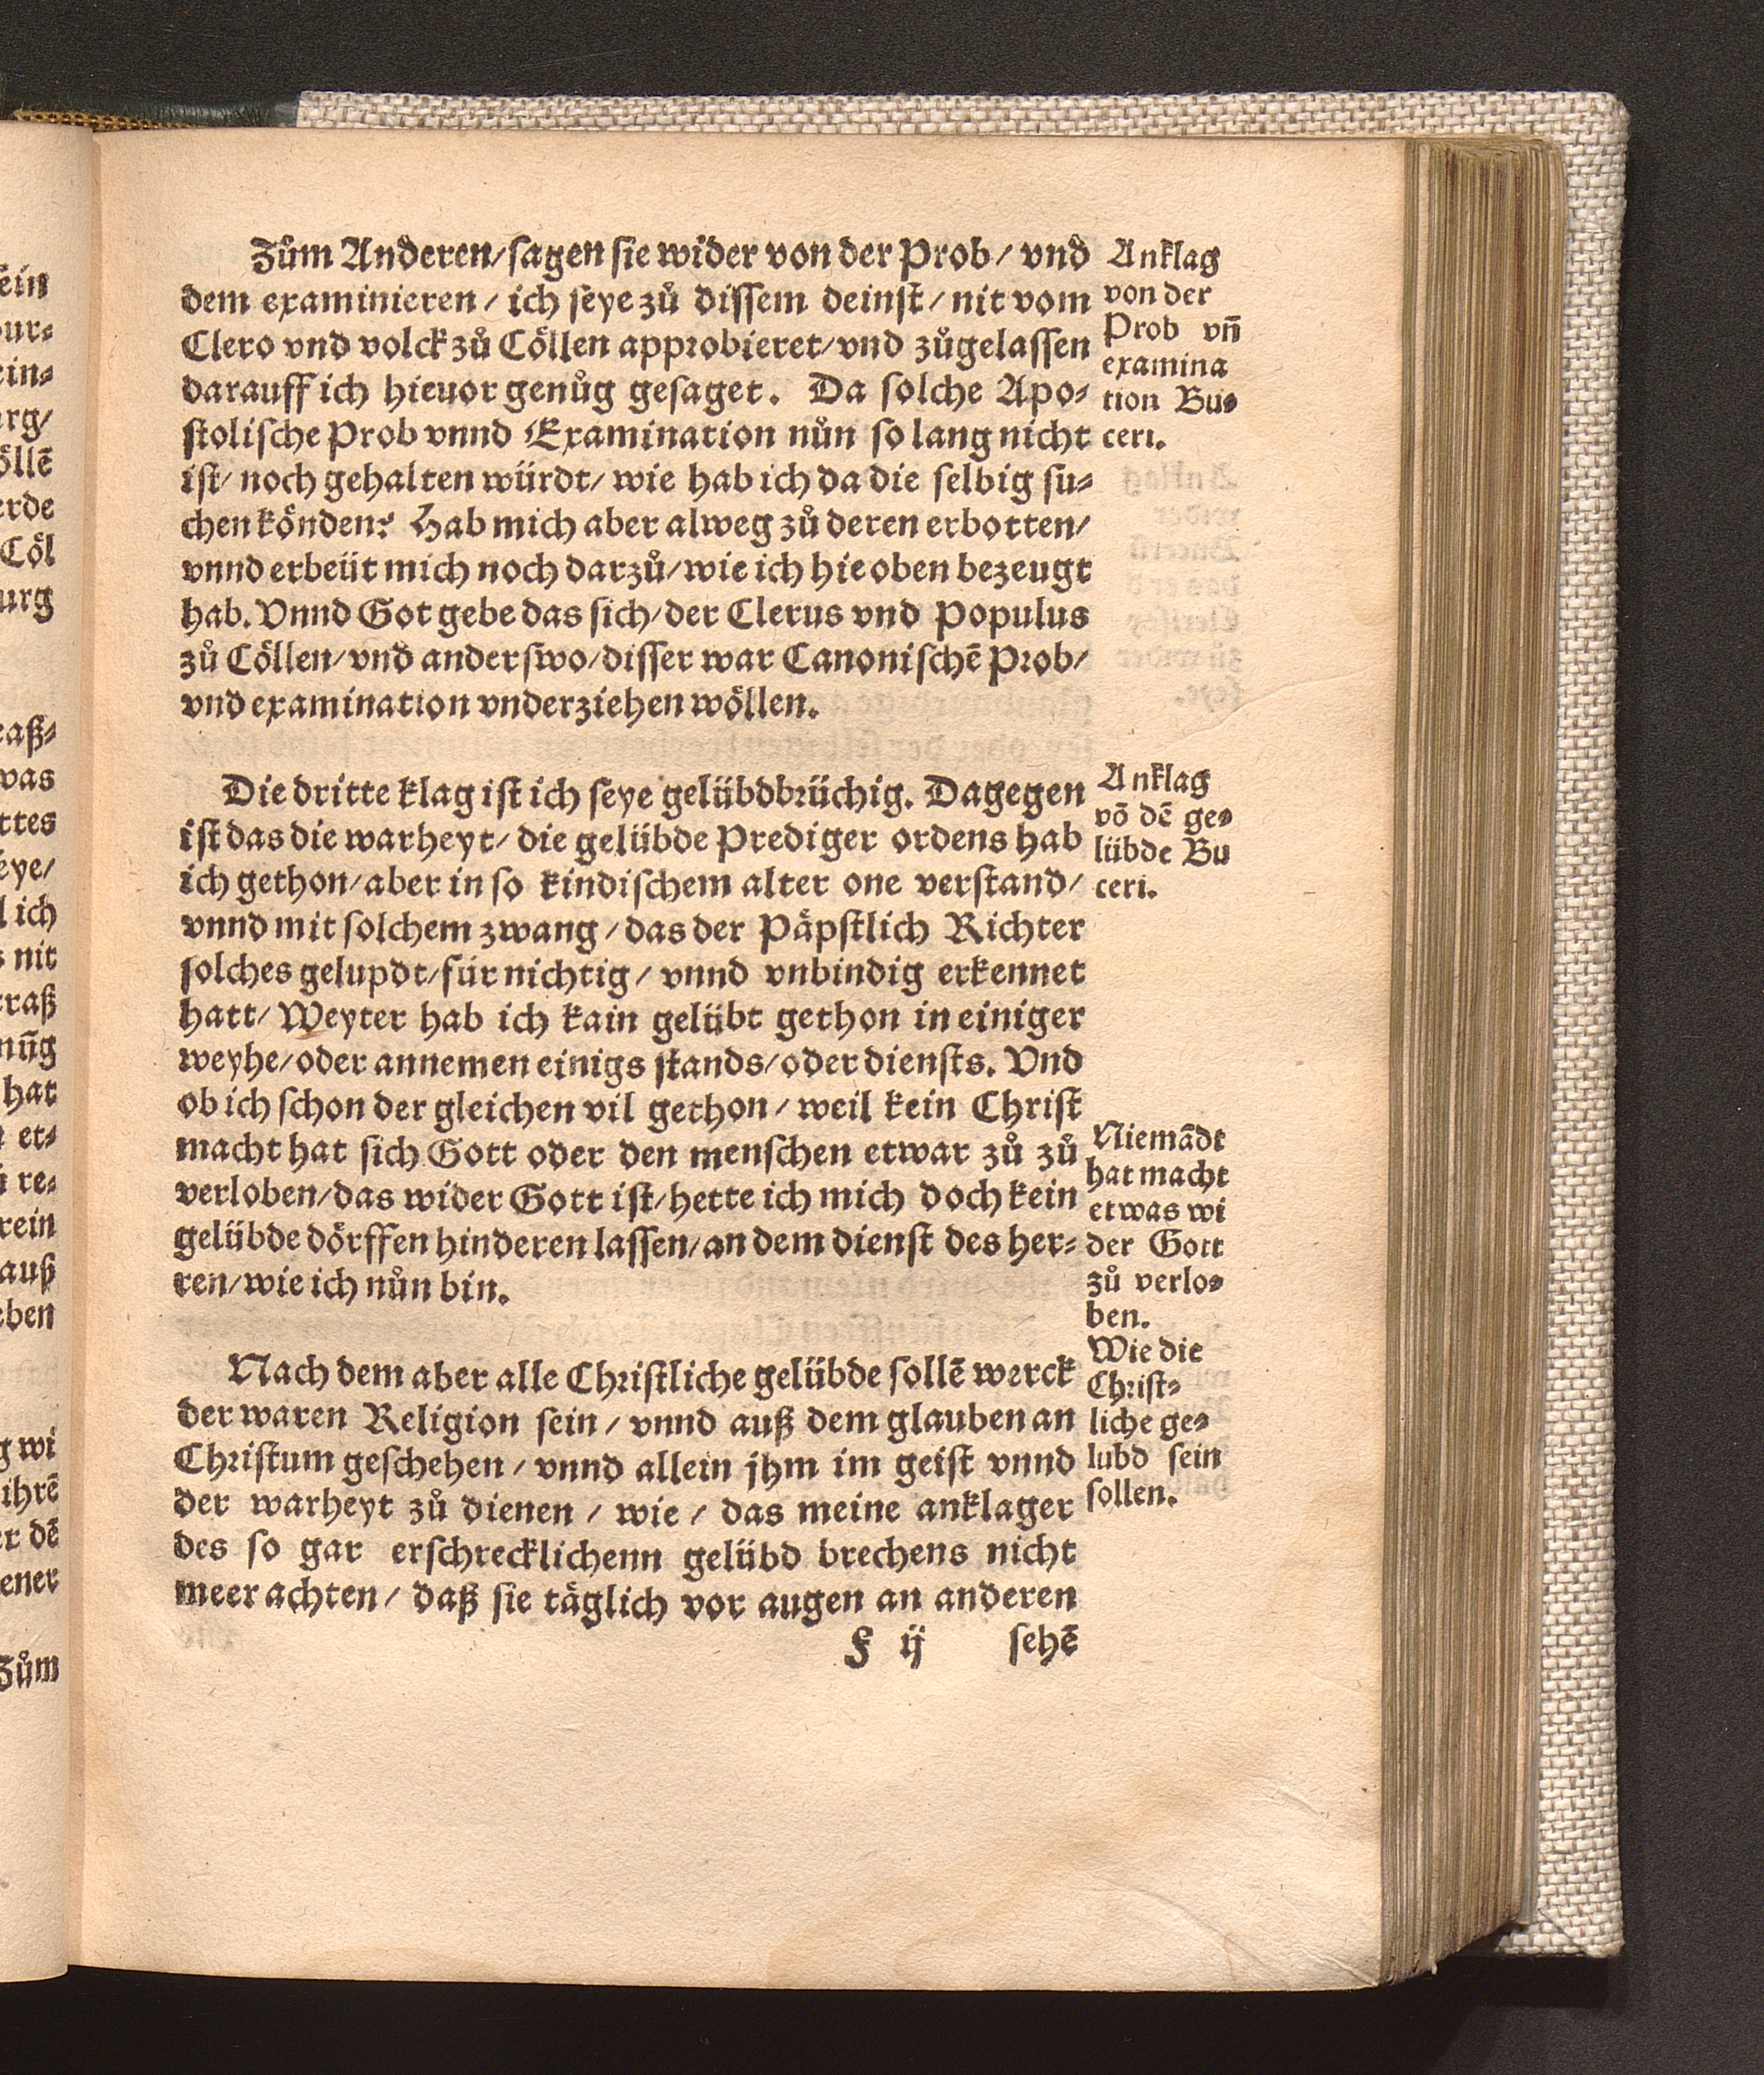 Zům Anderen/sagen sie wider von der Prob/ vnd
dem examinieren/ ich seye zů dissem deinst/ nit vom
Clero vnd volck zů Cöllen approbieret/vnd zůgelassen
darauff ich hieuor genůg gesaget. Da solche Apo⸗
stolische Prob vnnd Examination nůn so lang nicht
ist/ noch gehalten würdt/ wie hab ich da die selbig su⸗
chen könden? Hab mich aber alweg zů deren erbotten/
vnnd erbeüt mich noch darzů/wie ich hie oben bezeugt
hab. Vnnd Got gebe das sich/der Clerus vnd Populus
zů Cöllen/vnd anderswo/disser war Canonischē Prob/
vnd examination vnderziehen wöllen.
Anklag
von der
Prob vn̄
examina
tion Bu⸗
ceri.
Die dritte klag ist ich seye gelübdbrüchig. Dagegen
ist das die warheyt/ die gelübde Prediger ordens hab
ich gethon/aber in so kindischem alter one verstand/
vnnd mit solchem zwang/das der Päpstlich Richter
solches gelupdt/für nichtig/ vnnd vnbindig erkennet
hatt/ Weyter hab ich kain gelübt gethon in einiger
weyhe/oder annemen einigs stands/oder diensts. Vnd
ob ich schon der gleichen vil gethon/ weil kein Christ
macht hat sich Gott oder den menschen etwar zů zů
verloben/das wider Gott ist/hette ich mich doch kein
gelübde dörffen hinderen lassen/an dem dienst des her⸗
ren/wie ich nůn bin.
Anklag
vō dē ge⸗
lübde Bu
ceri.
Niemādt
hat macht
etwas wi
der Gott
zů verlo⸗
ben.
Nach dem aber alle Christliche gelübde sollē werck
der waren Religion sein/ vnnd auß dem glauben an
Christum geschehen/ vnnd allein jhm im geist vnnd
der warheyt zů dienen/ wie/ das meine anklager
des so gar erschrecklichenn gelübd brechens nicht
meer achten/ daß sie täglich vor augen an anderen
Wie die
Christ⸗
liche ge⸗
lubd sein
sollen.
F ij sehē